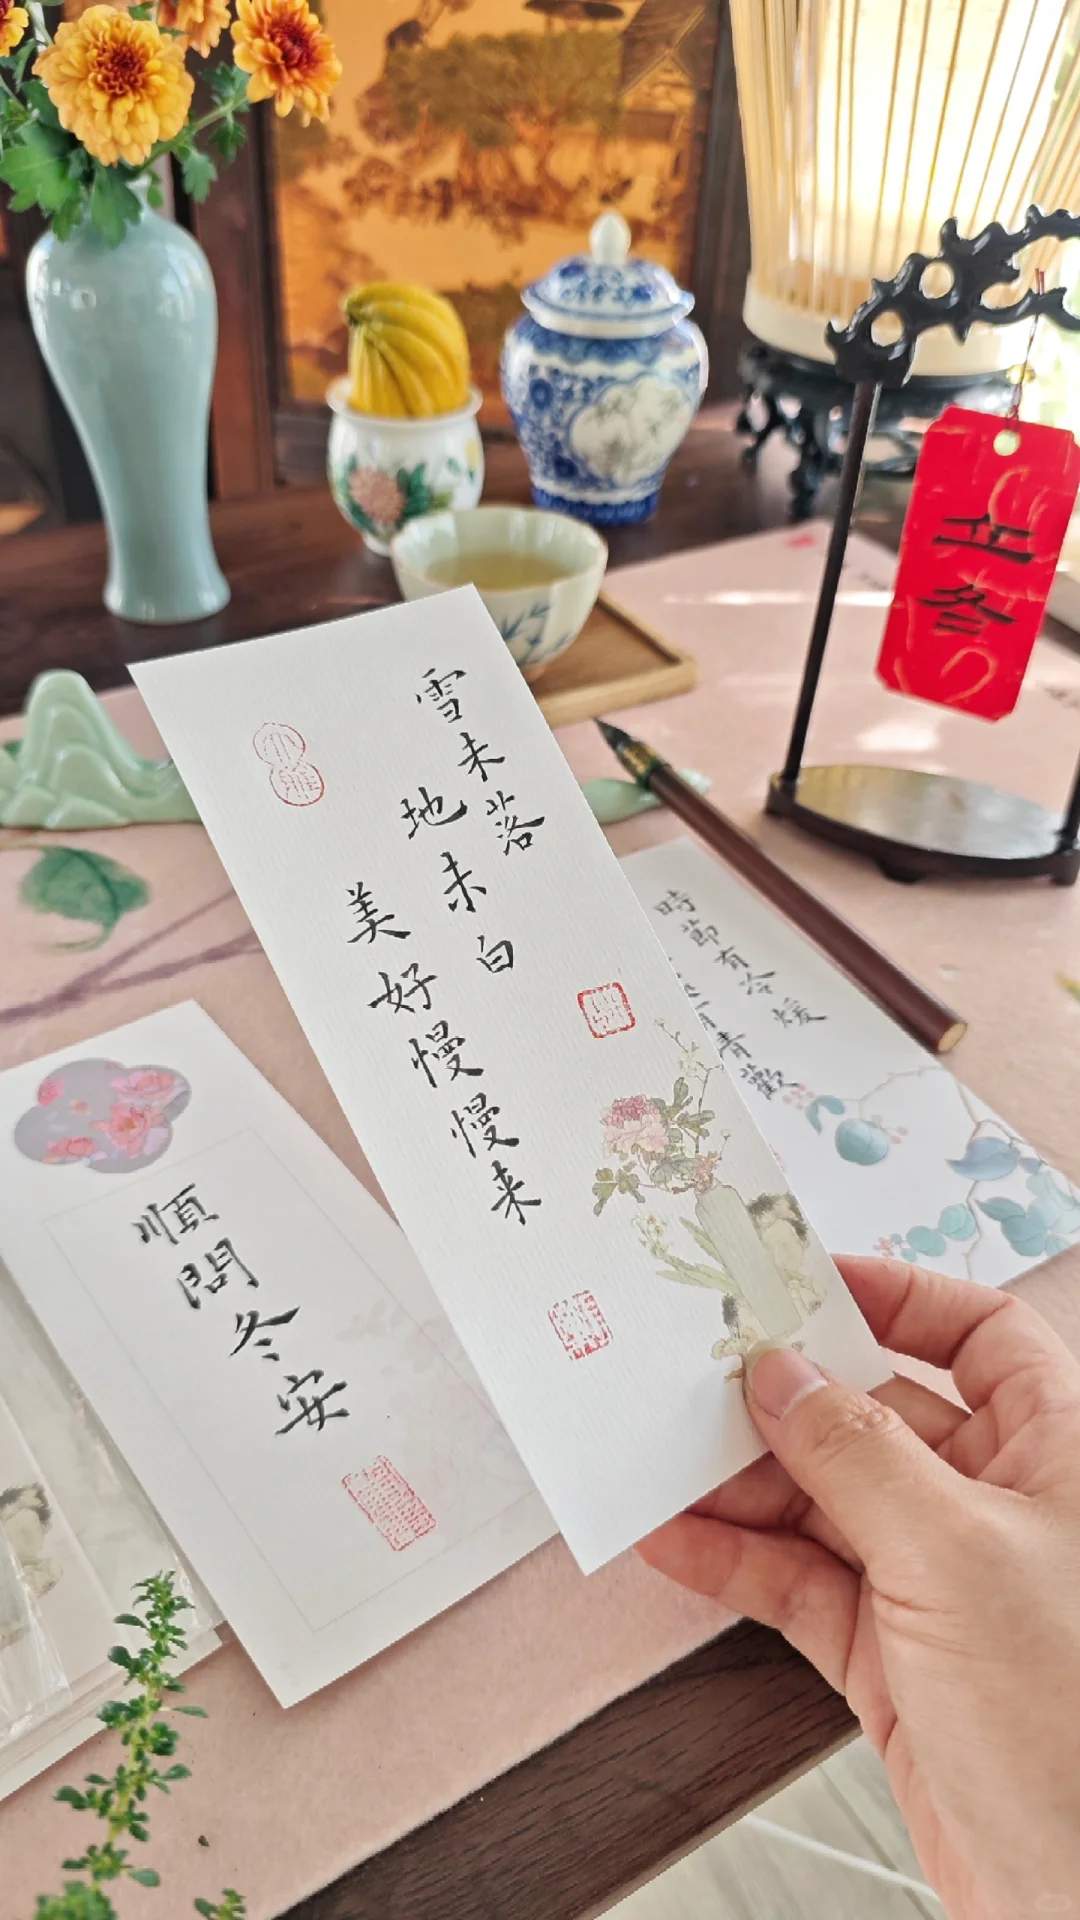 雪未落
地未白
美好慢慢来
小雅
順問冬安
時節有冷煖
青歡
立冬